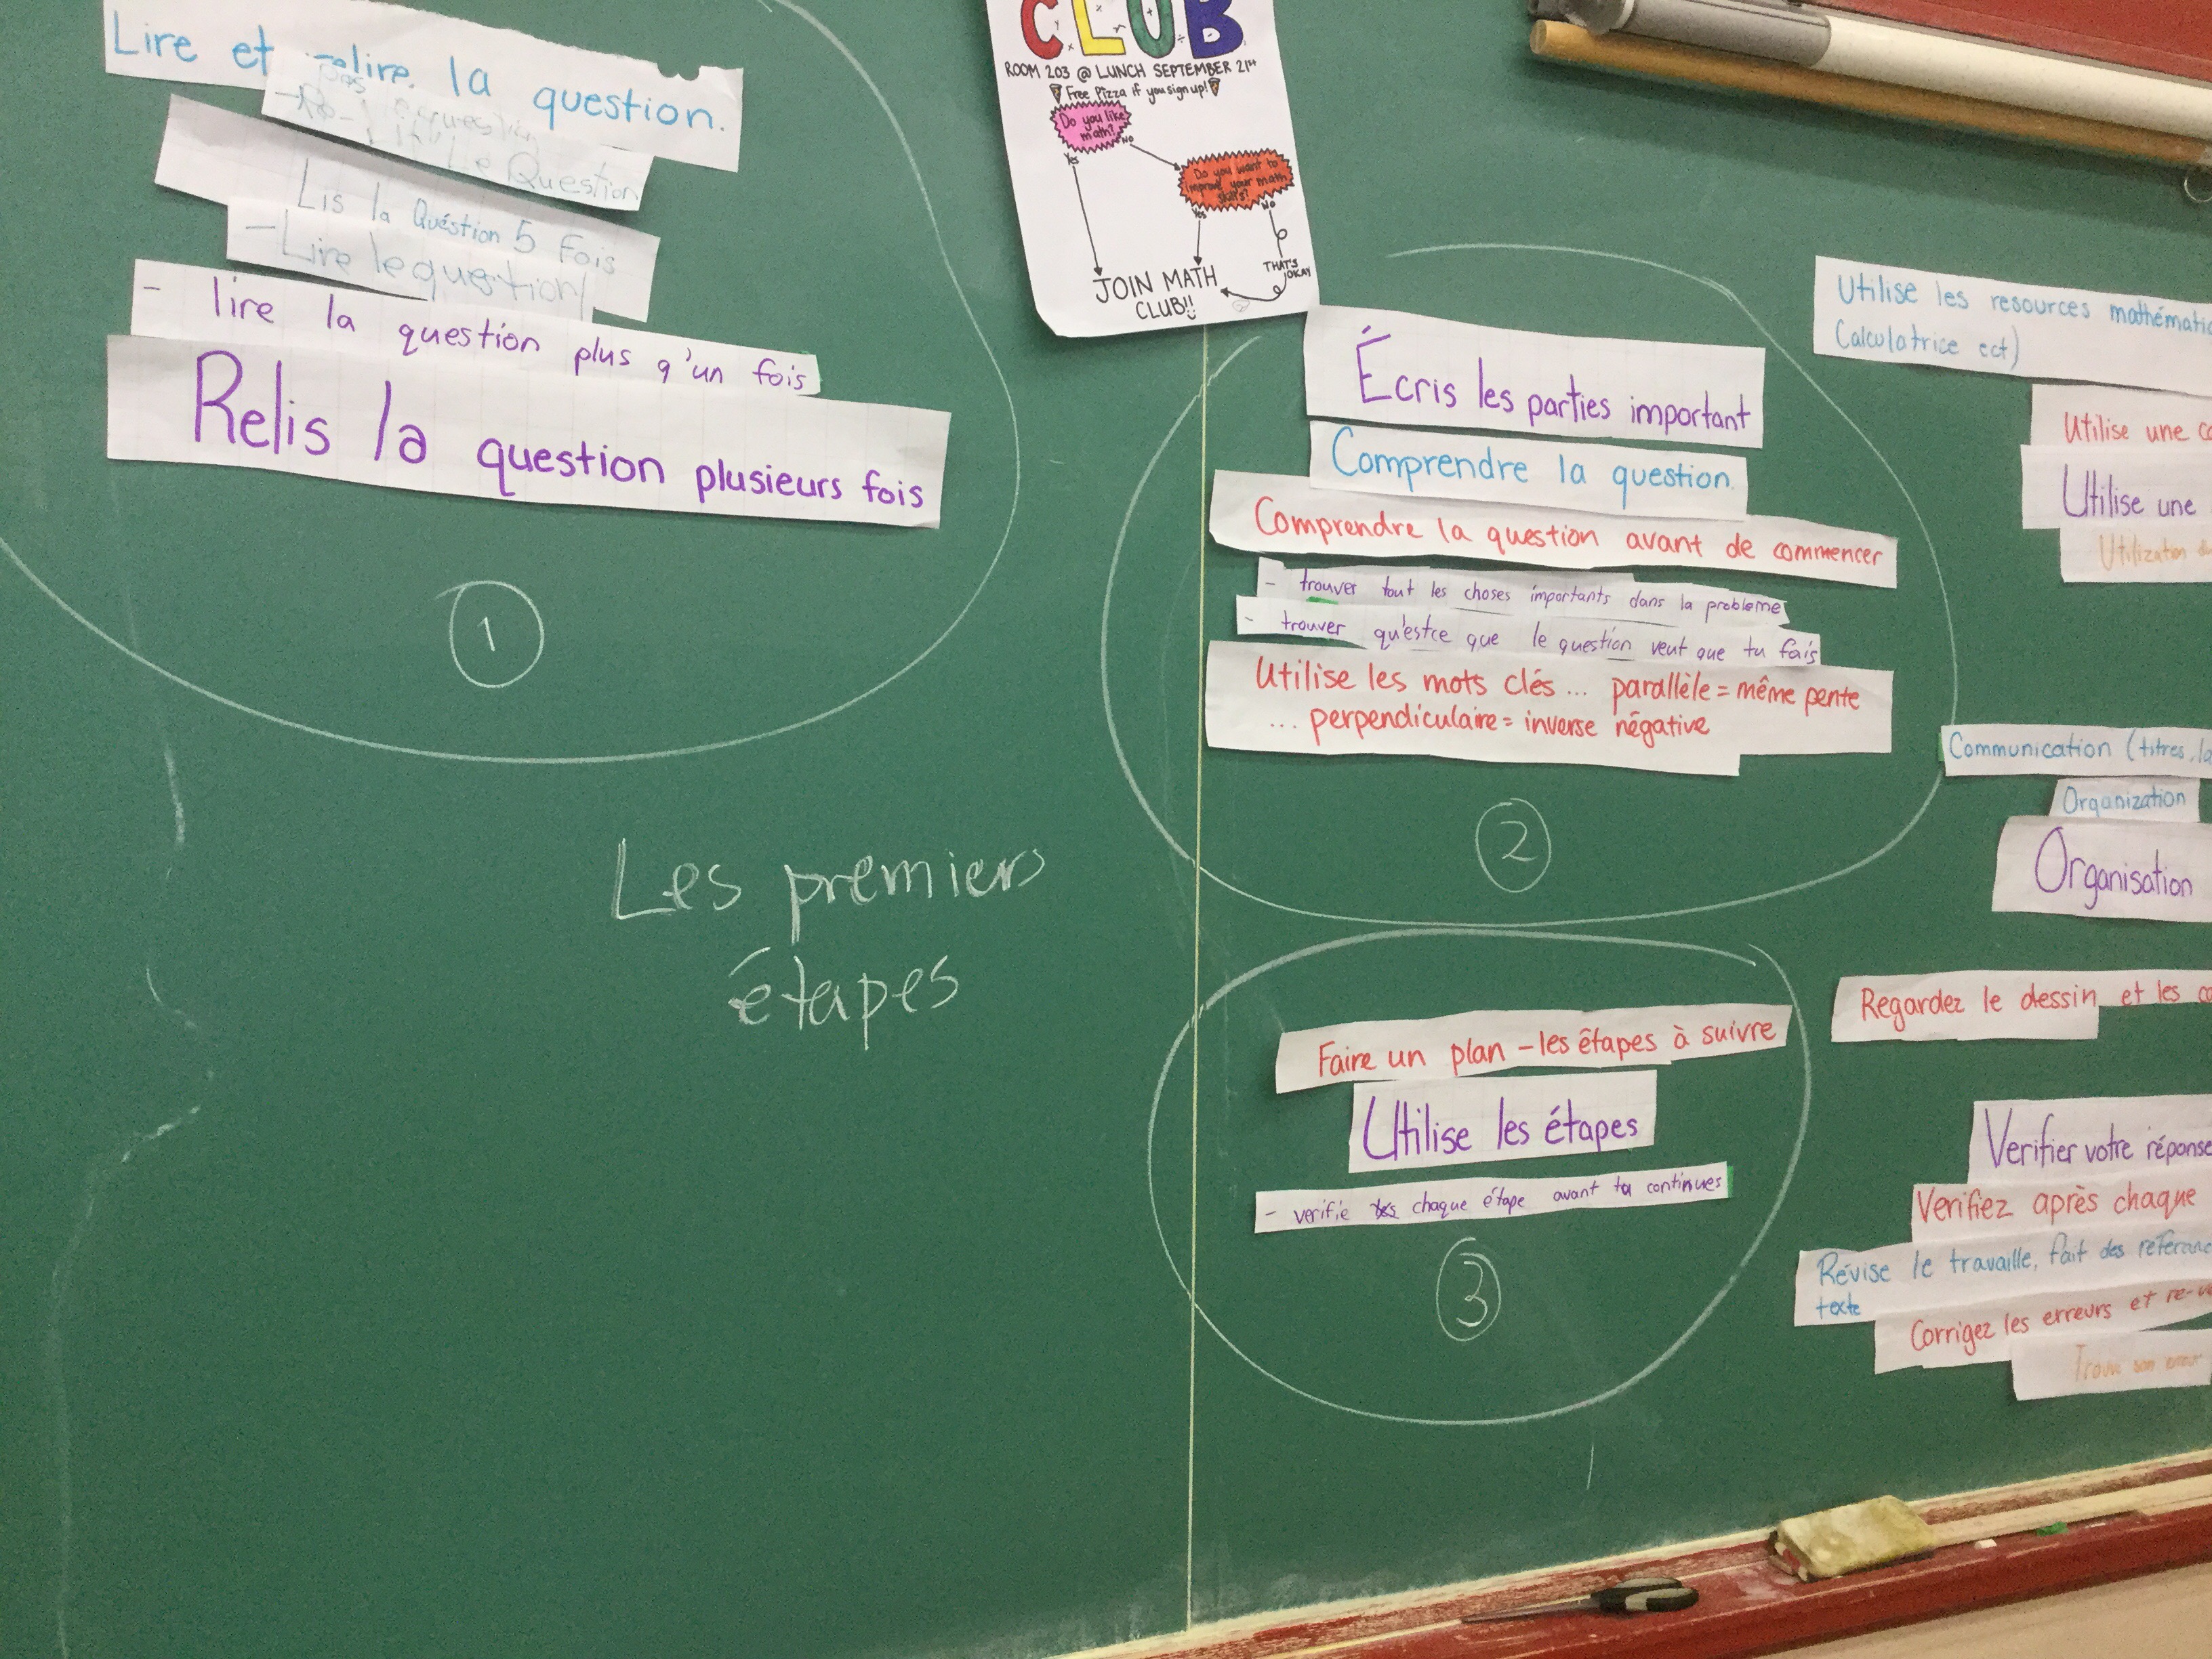 Lire et relire la question.
Question
Lis la Question 5 Fois
- Lire le question
- lire la question plus q'un fois
Relis la question plusieurs fois
1
Les premiers
étapes
CLUB
ROOM 203 @ LUNCH SEPTEMBER 21st
Free Pizza if you sign up!
Do you like
math?
Yes
No
Do you want to
improve your math
skills?
Yes
No
THAT'S
OKAY
JOIN MATH
CLUB!!
Écris les parties important
Comprendre la question.
Comprendre la question avant de commencer
- trouver tout les choses importants dans la probleme
- trouver qu'estce que le question veut que tu fais
Utilise les mots clés ... parallèle = même pente
... perpendiculaire = inverse négative
2
Faire un plan - les étapes à suivre
Utilise les étapes
- verifie chaque étape avant ta continues
3
Utilise les resources mathématic
Calculatrice ect)
Utilise une
Utilise une
Utilization
Communication (titres,
Organization
Organisation
Regardez le dessin et les
Verifier votre réponse
Verifiez après chaque
Révise le travaille, fait des
texte
Corrigez les erreurs et re-
Trouve son erreur